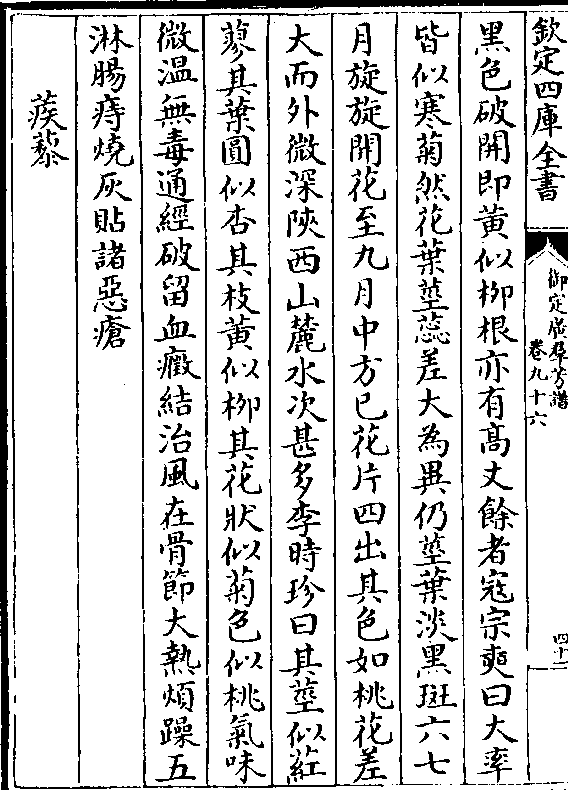 欽定四庫全書
御定廣羣芳譜
卷九十六
四十二
黑色破開即黄似柳根亦有髙丈餘者寇宗奭曰大率
皆似寒菊然花葉莖蕊差大為異仍莖葉淡黑斑六七
月旋旋開花至九月中方已花片四出其色如桃花差
大而外微深陜西山麓水次甚多李時珍曰其莖似葒
蓼其葉圓似杏其枝黄似柳其花狀似菊色似桃氣味
微温無毒通經破留血癥結治風在骨節大熱煩躁五
淋腸痔燒灰貼諸惡瘡
蒺藜